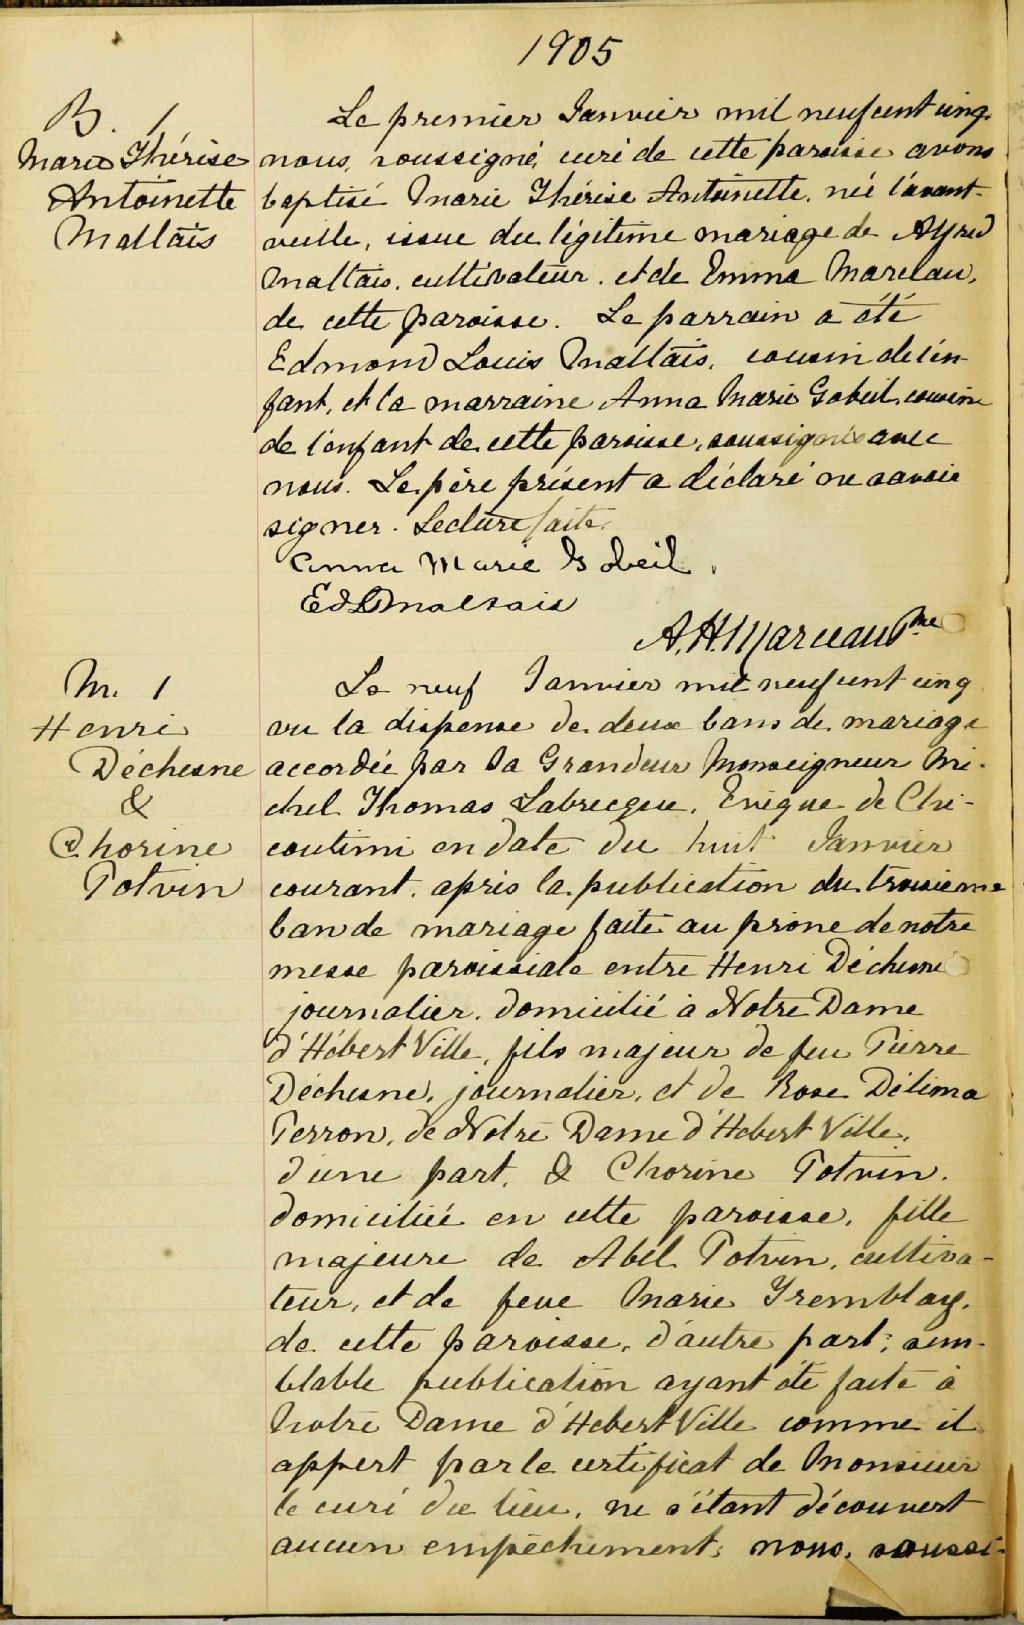 1905
B. 1
Marie Thérèse
Antoinette
Maltais
Le premier Janvier mil neufcent cinq.
nous, soussigné, curé de cette paroisse avons
baptisé Marie Thérèse Antoinette, née l'avant-
veille, issue du légitime mariage de Alfred
Maltais, cultivateur, et de Emma Marceau,
de cette paroisse. Le parrain a été
Edmond Louis Maltais, cousin de l'en-
fant, et la marraine Anna Marie Gobeil, cousine
de l'enfant de cette paroisse, soussignés avec
nous. Le père présent a déclaré ne savoir
signer. Lecture faite.
Anna Marie Gobeil.
Ed L Maltais
A. H. Marceau Ptre
M. 1
Henri
Déchesne
&
Chorine
Potvin
Le neuf Janvier mil neufcent cinq
vu la dispense de deux bans de mariage
accordée par Sa Grandeur Monseigneur Mi-
chel Thomas Labrecque, Evêque de Chi-
coutimi en date du huit Janvier
courant, après la publication du troisième
ban de mariage faite au prône de notre
messe paroissiale entre Henri Déchesne
journalier, domicilié à Notre Dame
d'Hébert Ville, fils majeur de feu Pierre
Déchesne, journalier, et de Rose Délima
Perron, de Notre Dame d'Hébert Ville,
d'une part, & Chorine Potvin,
domiciliée en cette paroisse, fille
majeure de Abel Potvin, cultiva-
teur, et de feue Marie Tremblay,
de cette paroisse, d'autre part; sem-
blable publication ayant été faite à
Notre Dame d'Hébert Ville comme il
appert par le certificat de Monsieur
le curé du lieu, ne s'étant découvert
aucun empêchement; nous, soussi-